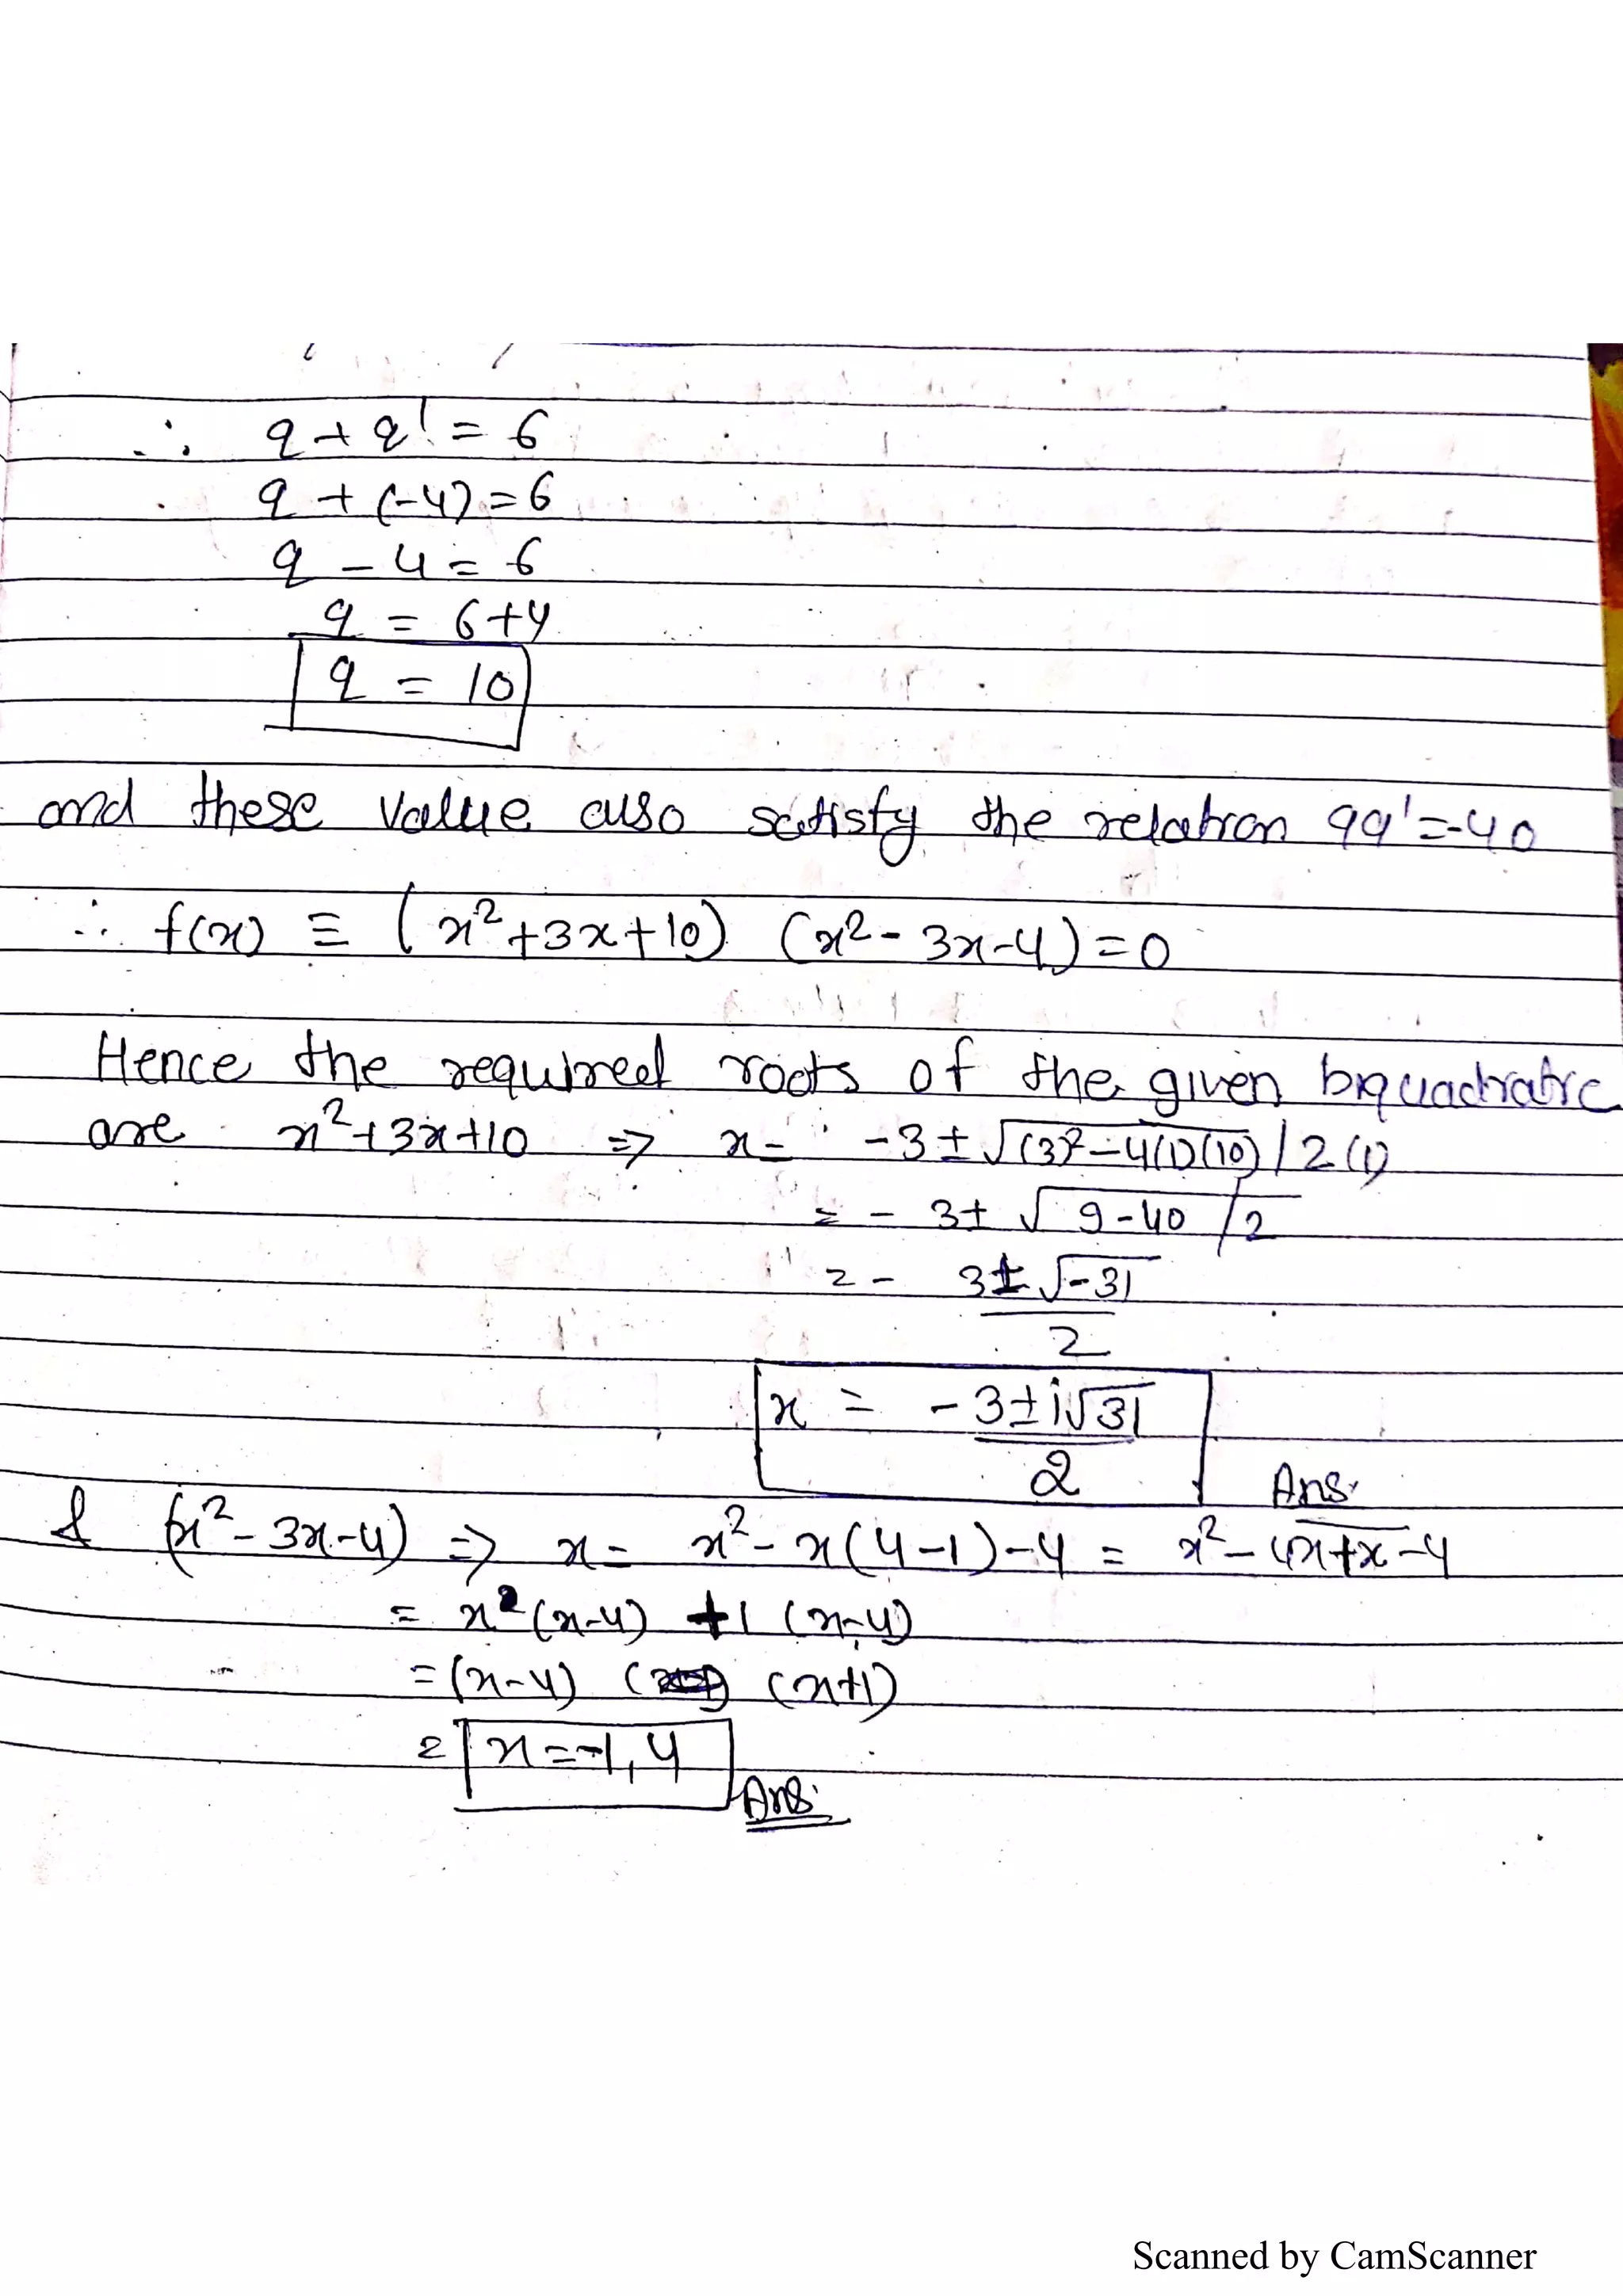 ∴ q + q' = 6
q + (-4) = 6
q - 4 = 6
q = 6+4
q = 10
and these value also satisfy the relation qq' = -40
∴ f(x) ≡ (x²+3x+10) (x²-3x-4) = 0
Hence the required roots of the given biquadratic
are x²+3x+10 => x = -3 ± √(3)²-4(1)(10) / 2(1)
= -3 ± √9-40 /2
= - 3±√-31 / 2
x = - 3±i√31 / 2 Ans.
& (x²-3x-4) => x = x²-x(4-1)-4 = x²-4x+x-4
= x(x-4) +1(x-4)
= (x-4) (x+1)
= x = -1, 4 Ans.
Scanned by CamScanner